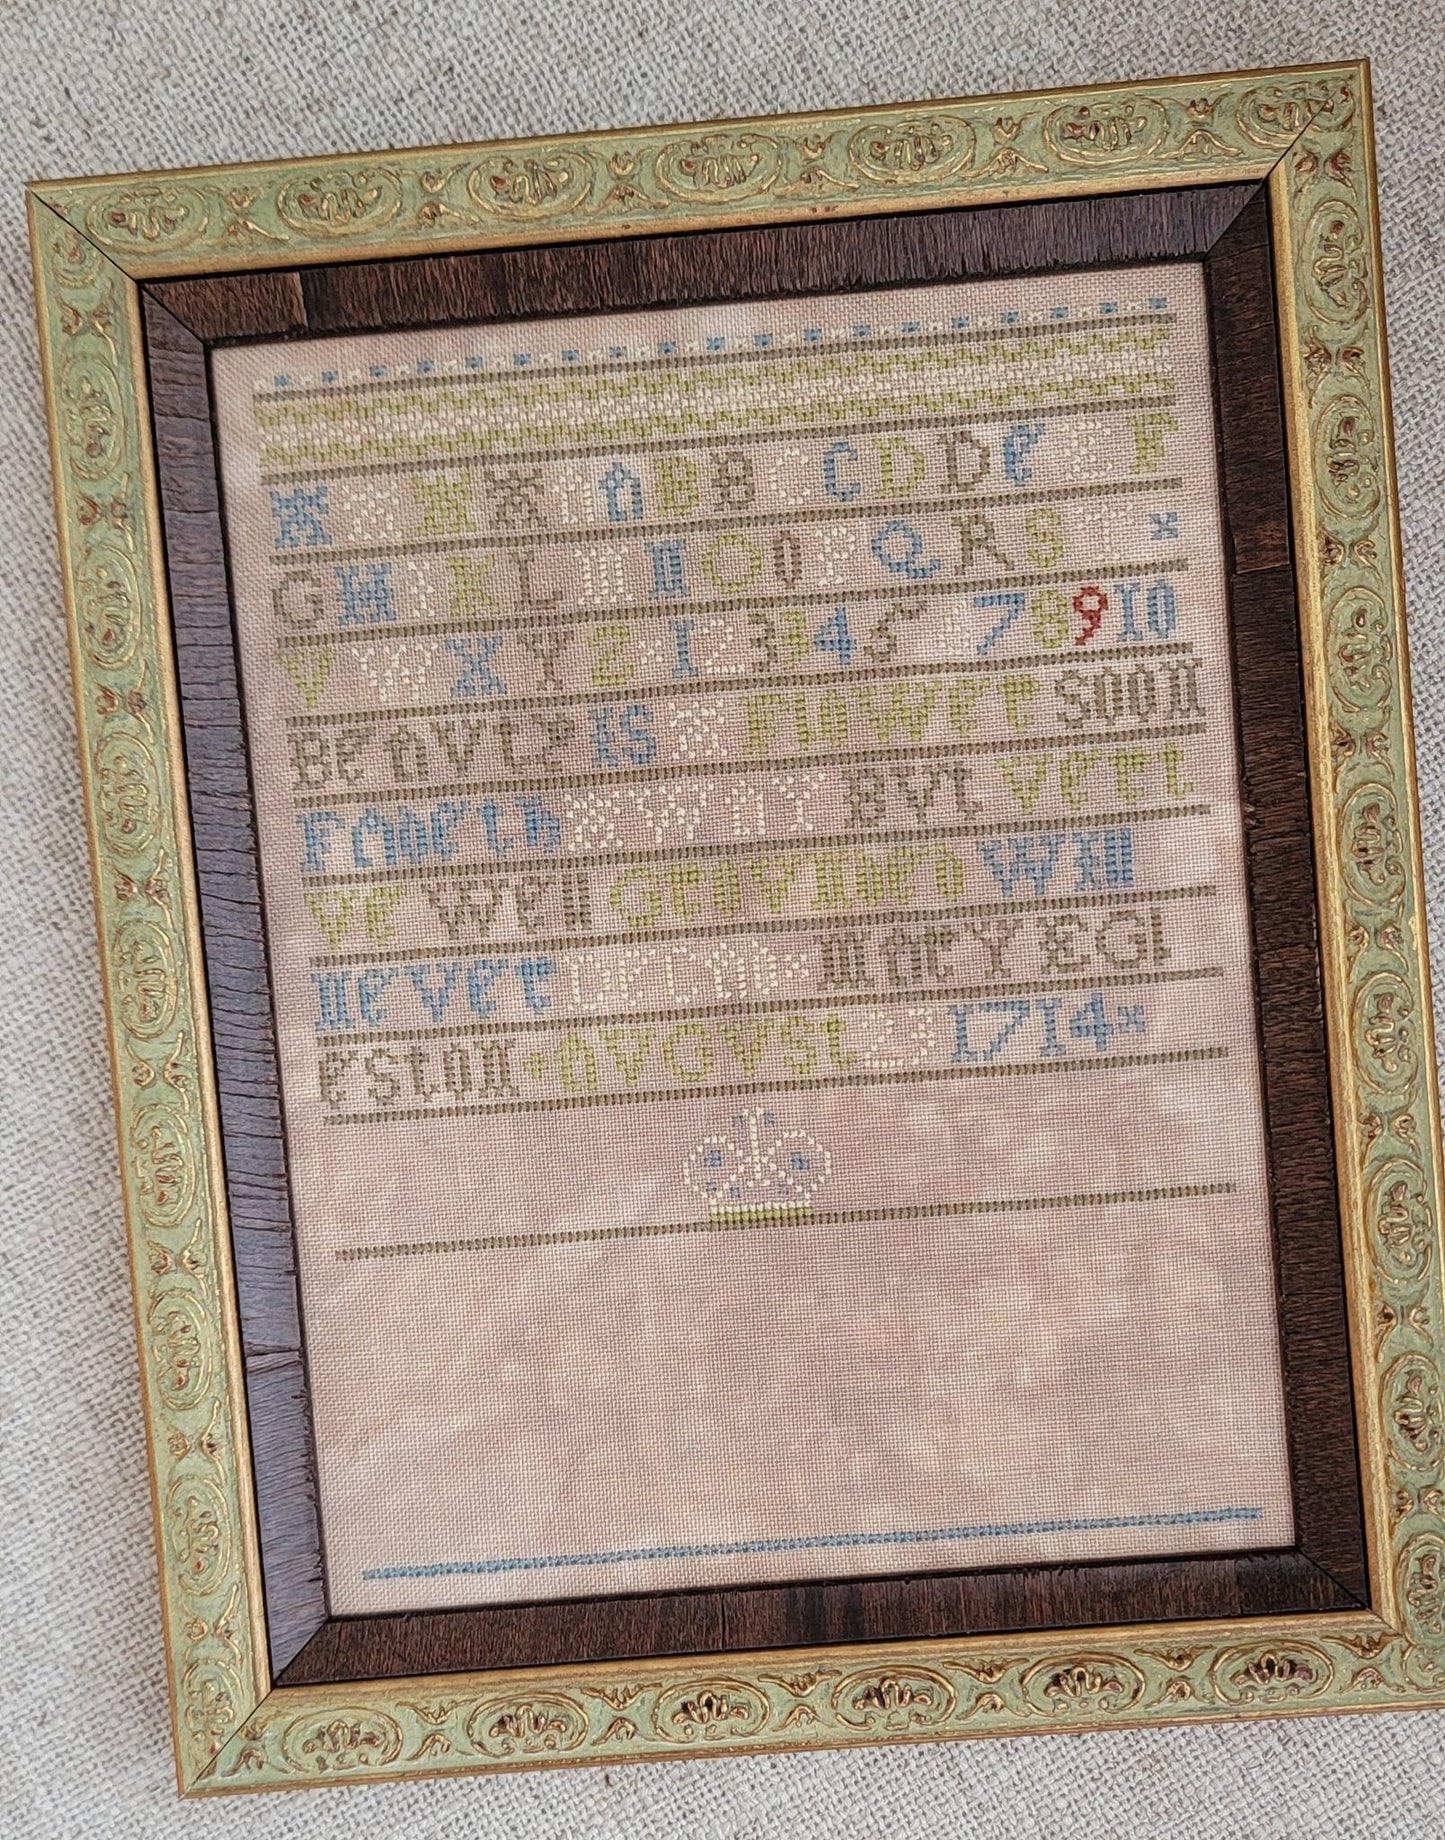 A A A A A A B B C C D D E E F
G H I K L M N O O P Q R S T
V W X Y Z 1 2 3 3 4 5 6 7 8 9 10
BEAVTY IS A FLOWER SOON
FADETH AWAY BVT VERT
VE WELL GROVNDED WILL
NEVER DECAD MARY EGL
ESTON AVGVST 23 1714